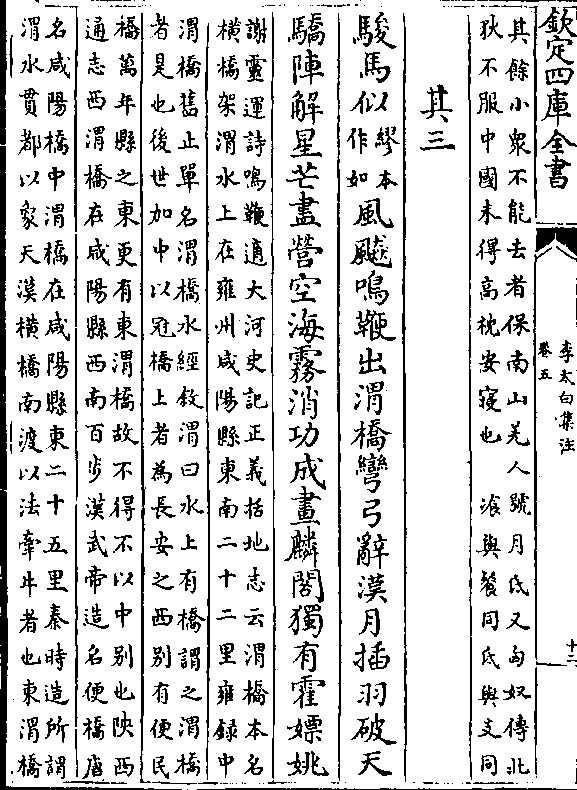 欽定四庫全書
李太白集注
卷五
十二
其餘小衆不能去者保南山羌人號月氏又匈奴傳北
狄不服中國未得高枕安寢也　湌與餐同氏與支同
其三
駿馬似繆本作如風飈鳴鞭出渭橋彎弓辭漢月插羽破天
驕陣解星芒盡營空海霧消功成畫麟閣獨有霍嫖姚
謝靈運詩鳴鞭適大河史記正義括地志云渭橋本名
橫橋架渭水上在雍州咸陽縣東南二十二里雍録中
渭橋舊止單名渭橋水經敘渭曰水上有橋謂之渭橋
者是也後世加中以冠橋上者為長安之西别有便民
橋萬年縣之東更有東渭橋故不得不以中别也陜西
通志西渭橋在咸陽縣西南百步漢武帝造名便橋唐
名咸陽橋中渭橋在咸陽縣東二十五里秦時造所謂
渭水貫都以象天漢橫橋南渡以法牽牛者也東渭橋